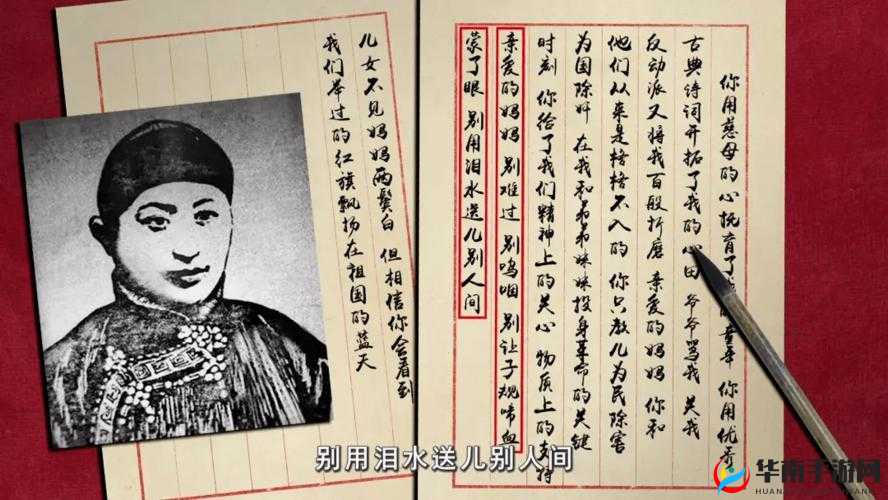 你用慈母的心抚育了的童年 你用优秀
古典诗词开拓了我的心田 爷爷骂我 关我
反动派又将我百般折磨 亲爱的妈妈 你和
他们从来是格格不入的 你只教儿为民除害
为国除奸 在我和弟弟妹妹投身革命的关键
时刻 你给了我们精神上的关心 物质上的支持
亲爱的妈妈 别难过 别呜咽 别让子规啼血
蒙了眼 别用泪水送儿别人间
儿女不见妈妈两鬓白 但相信你会看到
我们举过的红旗飘扬在祖国的蓝天
别用泪水送儿别人间
华南手游网